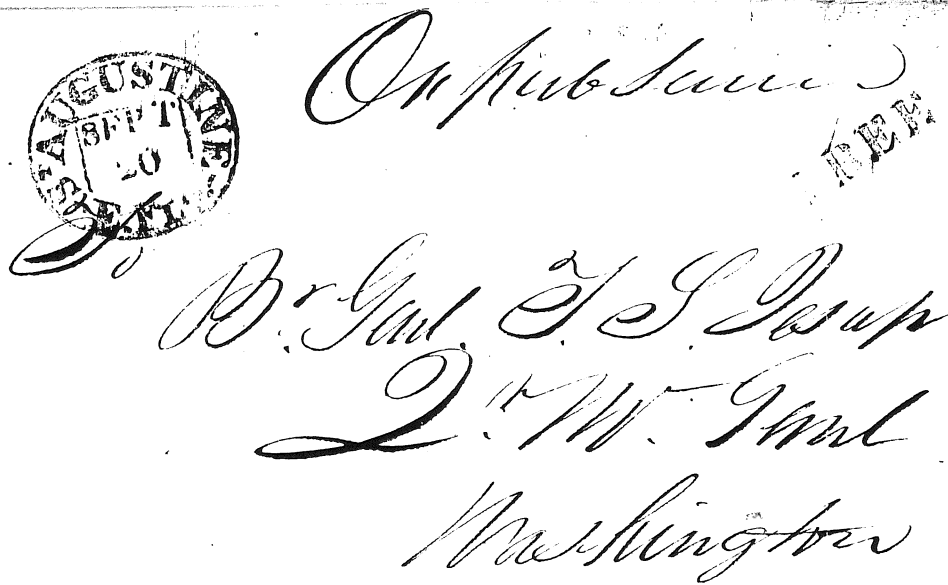 On pub Servic
ST AUGUSTINE
SEPT
20
FLT.
FREE
To
Br. Genl. T. S. Jesup
Qr. Mr. Genl
Washington